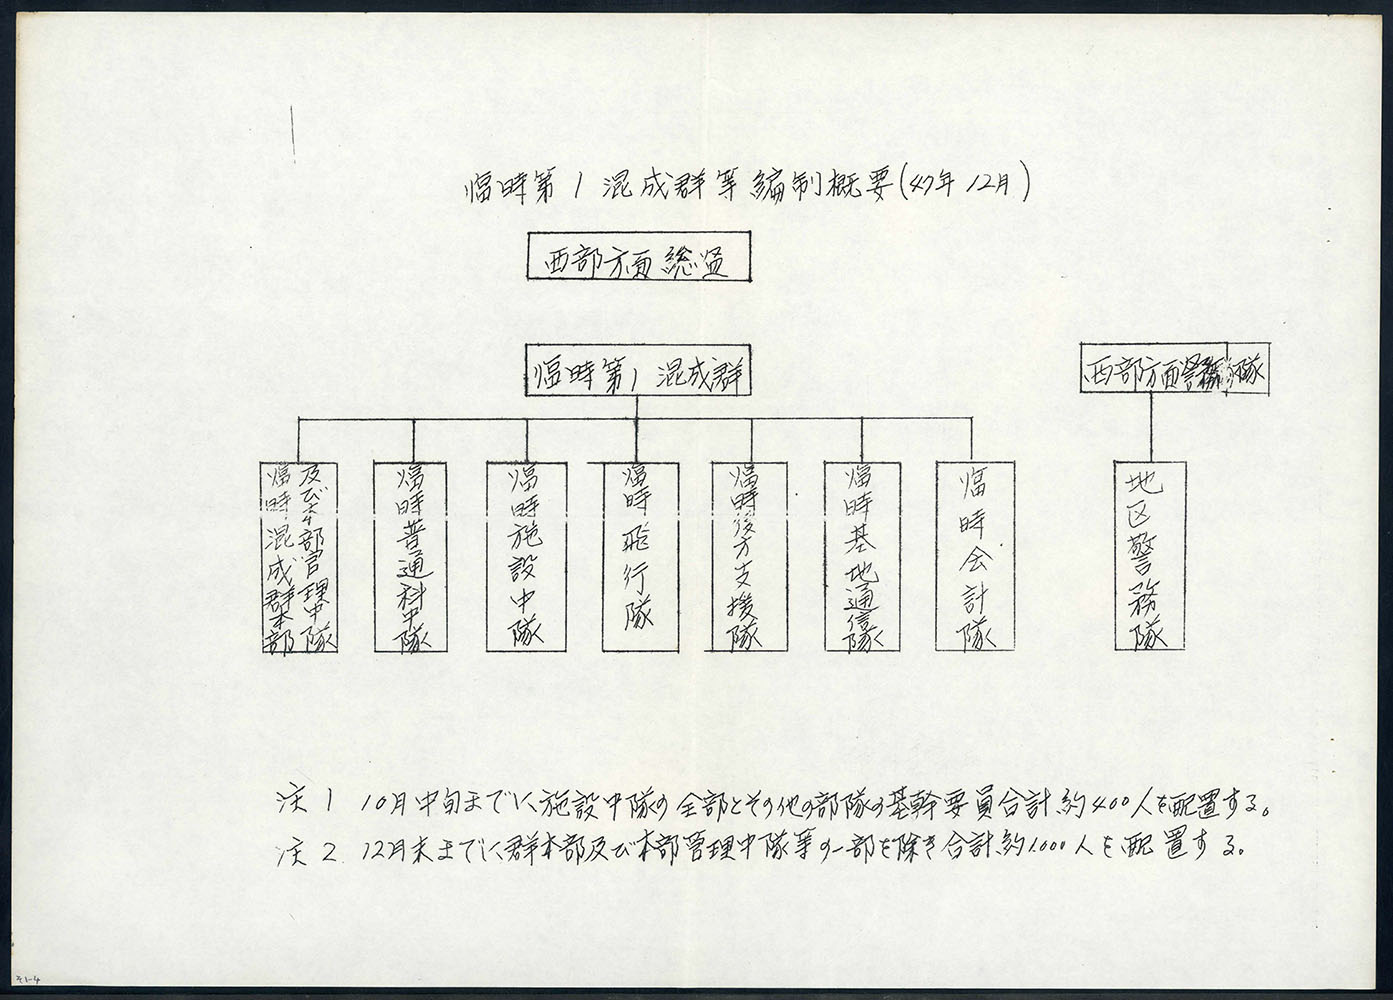 臨時第1混成群等編制概要(47年12月)
西部方面総監
臨時第1混成群
西部方面警務隊
臨時混成群本部
及び本部管理中隊
臨時普通科中隊
臨時施設中隊
臨時飛行隊
臨時後方支援隊
臨時基地通信隊
臨時会計隊
地区警務隊
注1 10月中旬までに、施設中隊の全部とその他の部隊の基幹要員合計約400人を配置する。
注2. 12月末までに、群本部及び本部管理中隊等の一部を除き合計約1.000人を配置する。